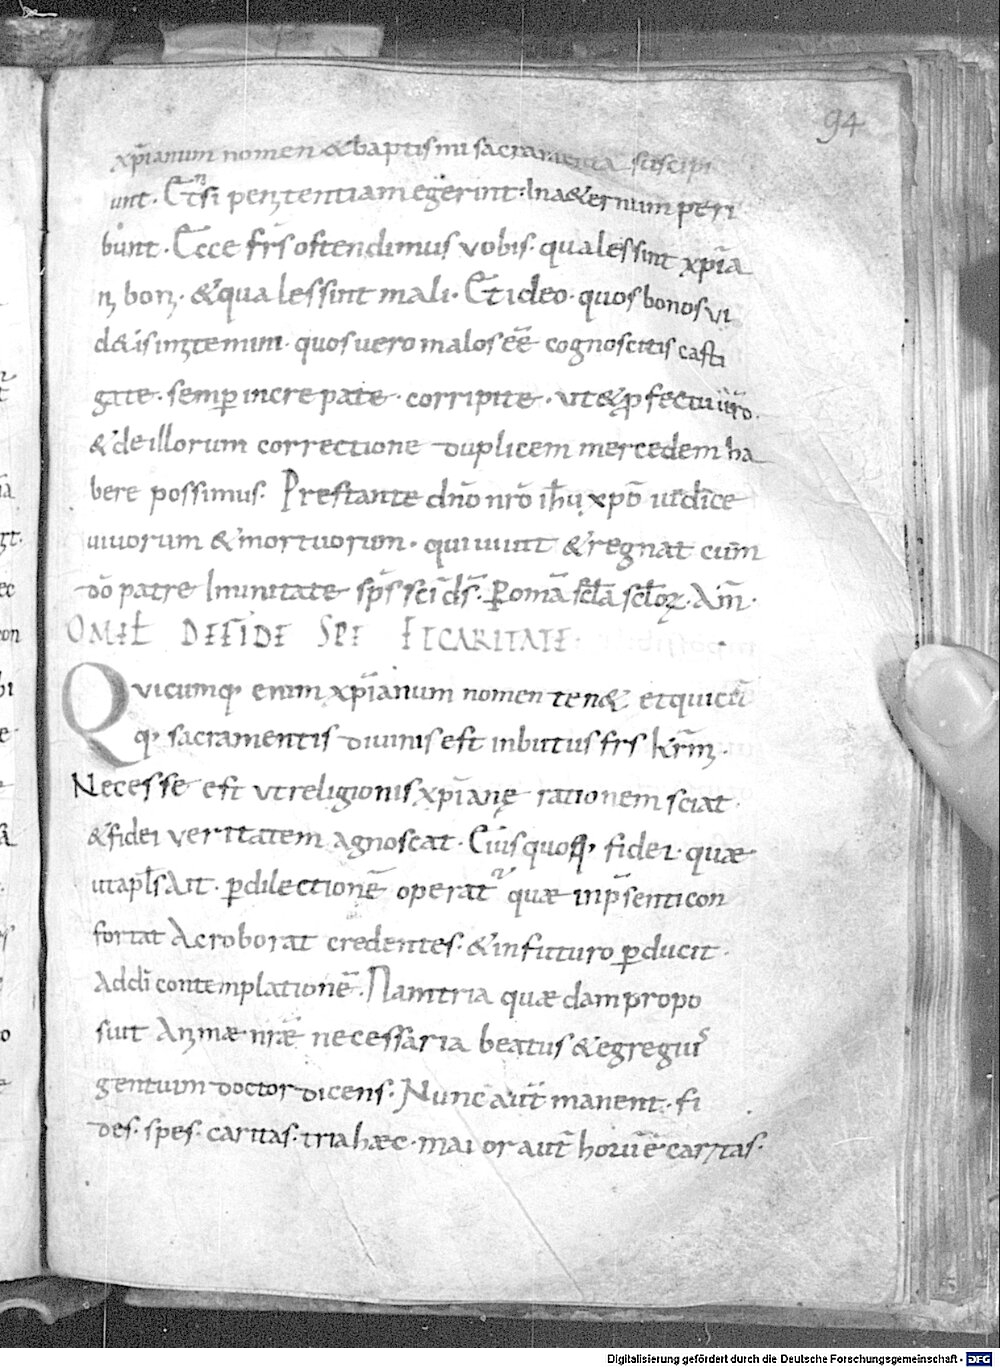 94
xp̄ianum nomen & baptismi sacramenta suscipi
unt. Et si penitentiam egerint. In a&ernum peri
bunt. Ecce fr̄s ostendimus vobis. quales sint xp̄ia
ni boni. & quales sint mali. Et ideo. quos bonos vi
d&is imitemini. quos uero malos eē cognoscitis casti
gate. semp̄ increpate. corripite. ut & p̄fectu ūro.
& de illorum correctione duplicem mercedem ha
bere possimus. Prestante dn̄o nr̄o ih̄u xp̄o iudice
uiuorum & mortuorum. qui uiuit & regnat cum
dō patre In unitate sp̄s sc̄i d̄s. P̄ omā sc̄la sc̄lorꝝ. Am̄.
OMEL DE FIDE SPE ET CARITATE.
Quicumq; enim xp̄ianum nomen ten& et quicū
q; sacramentis diuinis est inbutus fr̄s kr̄mi.
Necesse est ut religionis xp̄iane rationem sciat.
& fidei veritatem agnoscat. Eius quoq; fidei. quæ
ut apl̄s Ait. p̄ dilectionē operat̄ quæ in p̄senti con
fortat Ac roborat credentes. & in futuro p̄ducit.
Ad dī contemplationē. Nam tria quædam propo
suit Animæ nr̄æ necessaria beatus & egregius
gentium doctor dicens. Nunc aut̄ manent. fi
des. spes. caritas. tria hæc. maior aut̄ horū ē caritas.
Digitalisierung gefördert durch die Deutsche Forschungsgemeinschaft - DFG